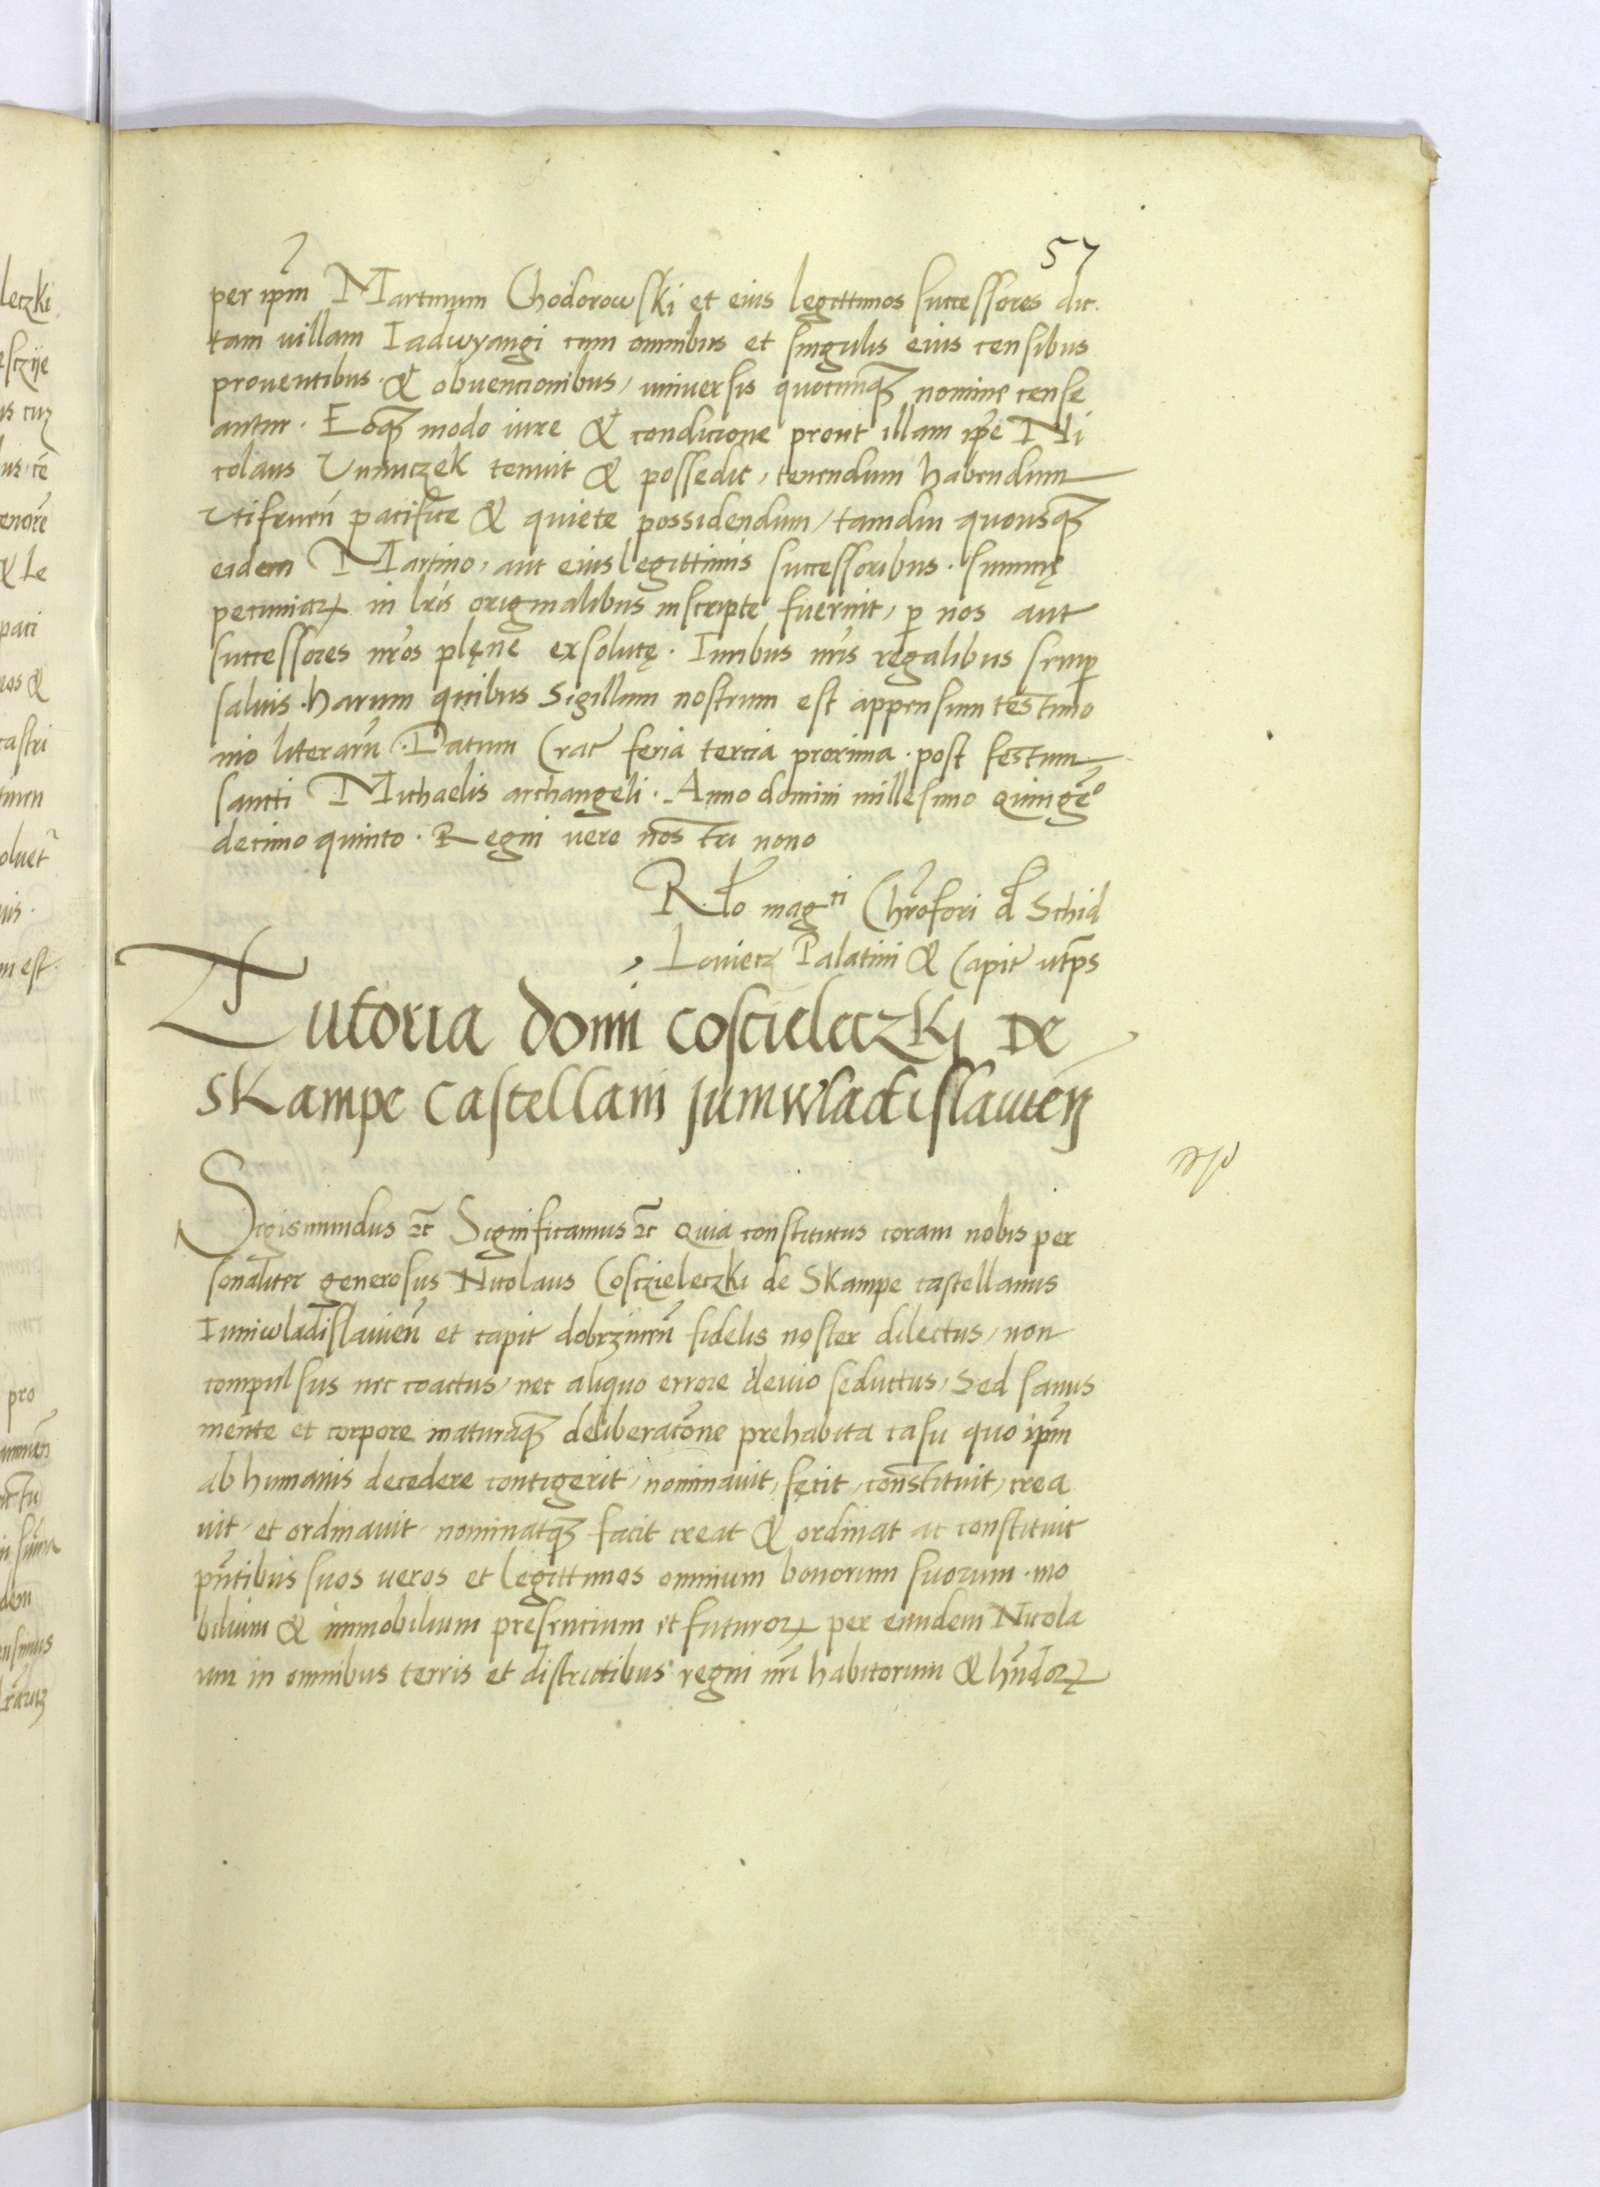 57
per ip̃m Martinum Chodorowski et eius legittimos successores dic-
tam uillam Iadwyangi cum omnibus et singulis eius censibus
prouentibus & obuencionibus, uniuersis quocunq₃ nomine cense
antur. Eoq₃ modo iure & condicione prout illam ip̃e Ni
colaus tenuit & possedit, tenendum habendum
Utifruen̄ pacifice & quiete possidendum, tamdiu quousq₃
eidem Martino, aut eius legittimis successoribus. summę
pecuniaꝝ in lr̃is originalibus inscripte fuerint, ꝑ nos aut
successores nr̃os plęne exsolutę. Iuribus nr̃is regalibus semꝑ
saluis. harum quibus Sigillum nostrum est appensum testimo
nio literarū. Datum Crac feria tercia proxima. post festum
sancti Michaelis archangeli. Anno domini millesimo Quinge͂º
decimo quinto. Regni vero nostri nono
R.lo mag^ci Chr̃ofori d Schid
Louiecz Palatini & Capit ut ps
Tutoria domi coscieleczki De
Skampe castellani juniwladislauien̄
Sigismundus ⁊c̃ Significamus ⁊c̃ Quia constitutus coram nobis per
sonaliter generosus Nicolaus Cosczieleczki de Skampe castellanus
Iuniwladislauien̄ et capit dobrzinen̄ fidelis noster dilectus, non
compulsus nec coactus, nec aliquo errore deuio seductus, Sed sanus
mente et corpore maturaq₃ deliberac̃one prehabita casu quo ip̃m
ab humanis decedere contigerit, nominauit, fęcit, constituit, crea
uit, et ordinauit, nominatq₃ facit creat & ordinat ac constituit
pn̄tibus suos ueros et legittimos omnium bonorum suorum. mo
bilium & immobilium presencium et futuroꝝ per eundem Nicola
um in omnibus terris et districtibus regni nr̃i habitorum & hn̄doꝝ